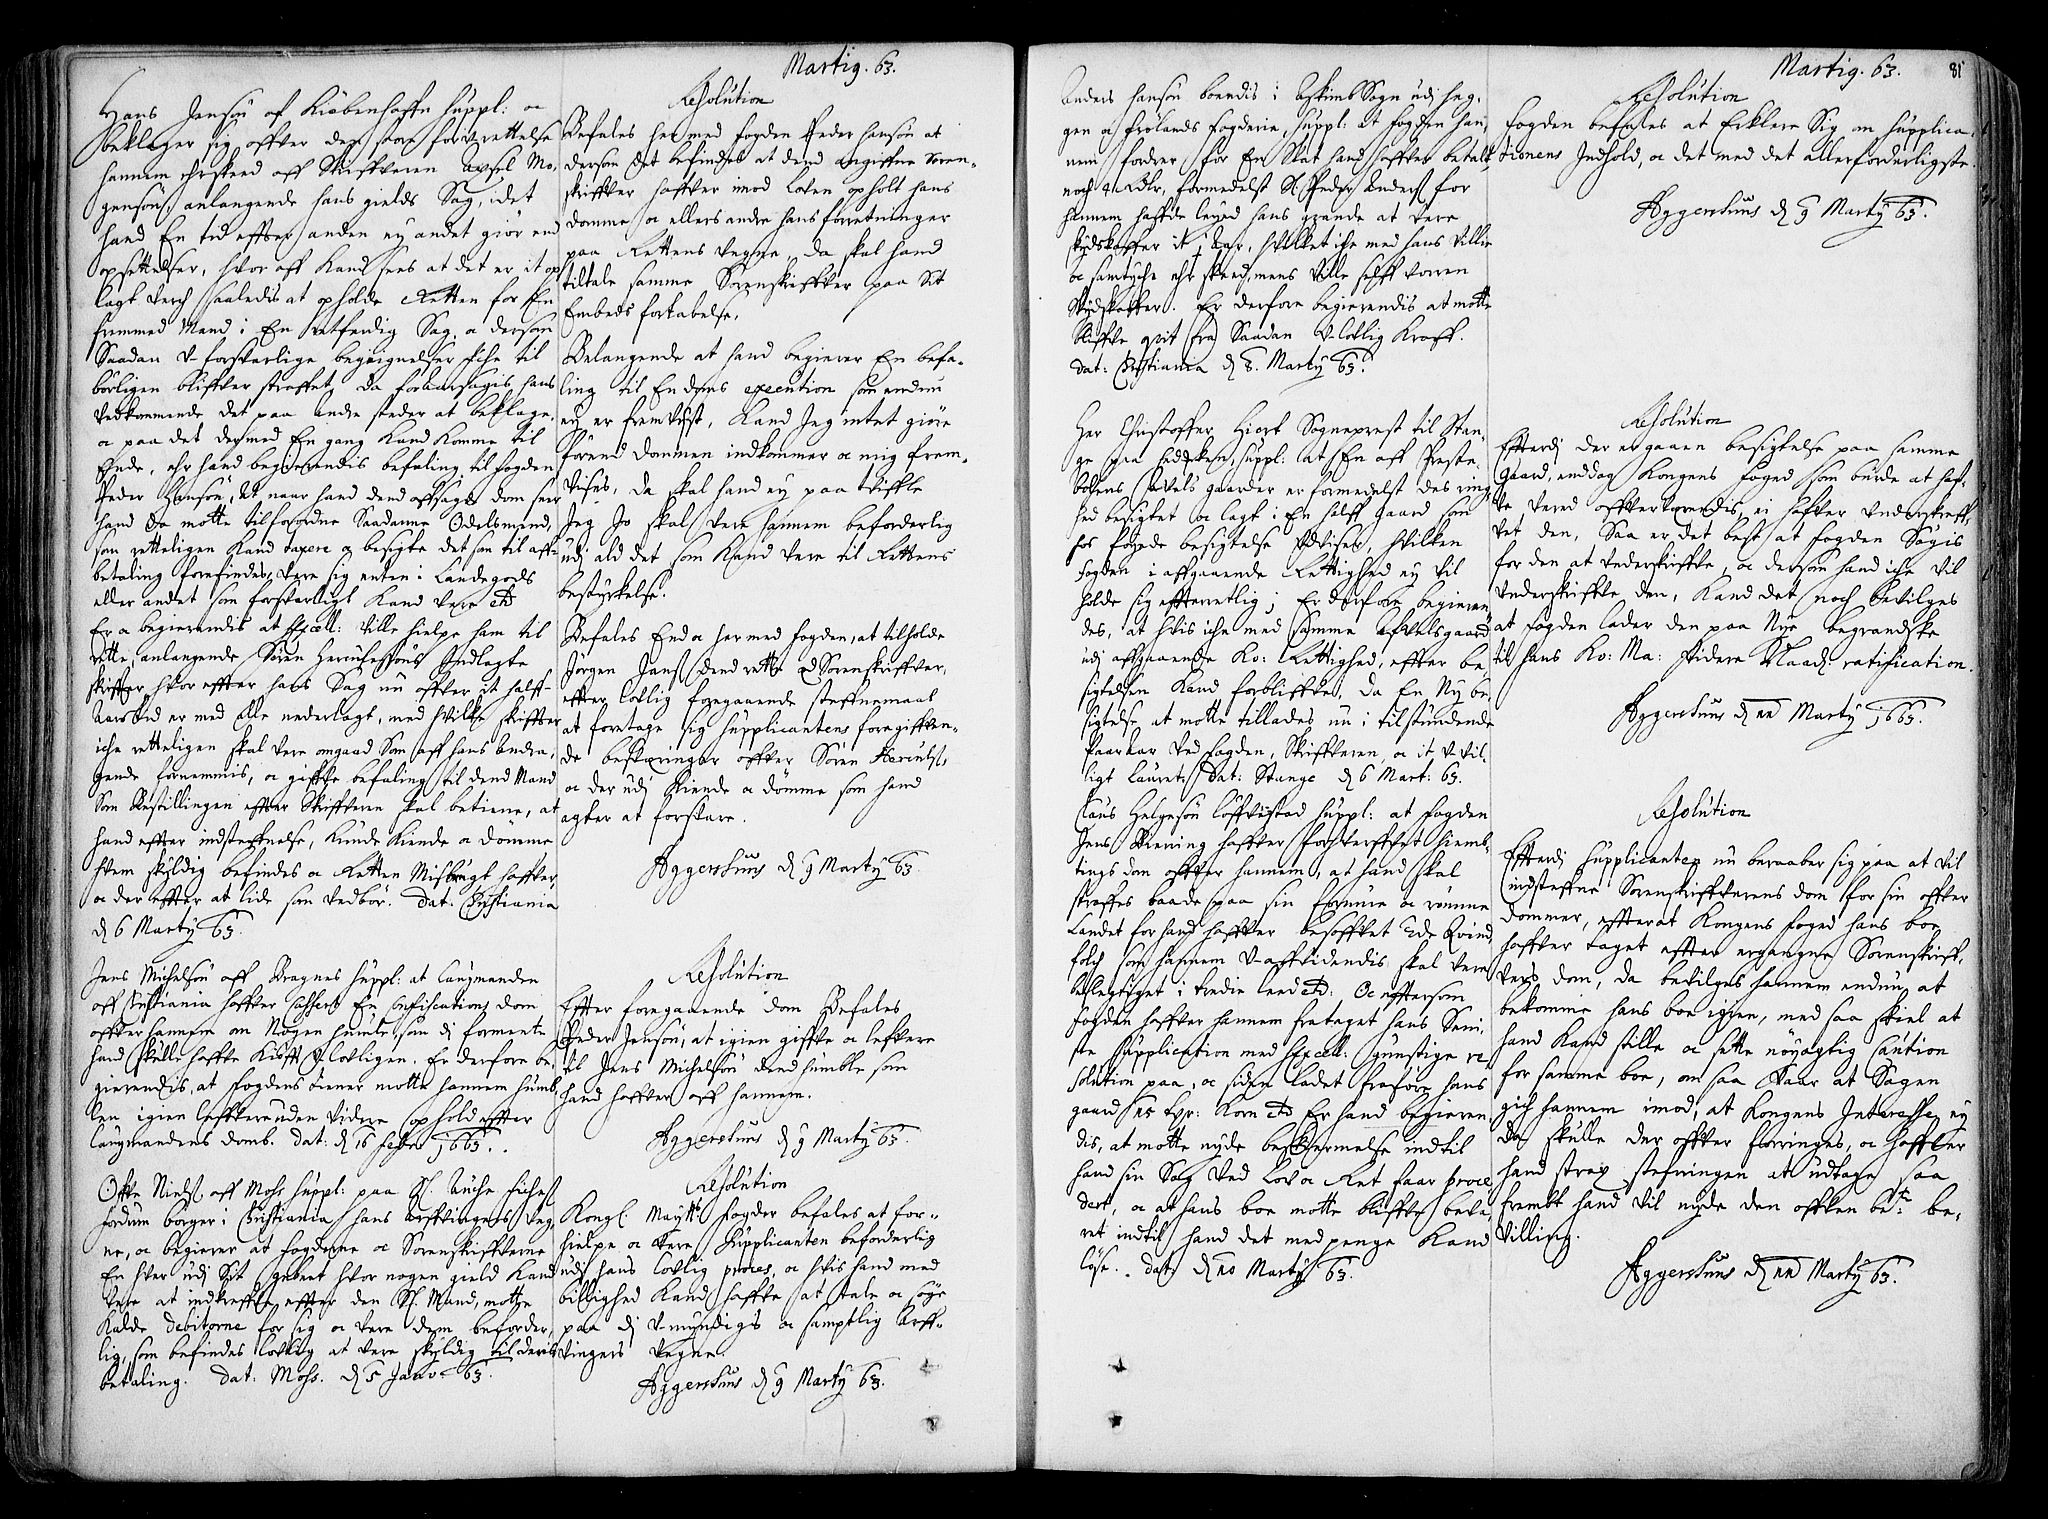 Martij. 63.
Hans Jensøn af Kiøbenhaffn suppl: oc
beklager sig offver den store forurettelse
hannem ehr skeed aff Skriffveren Axsel Mo,
gensøn, anlangende hans gields Sag, i det
hand En tid effter anden ey andet giør end
opsettelser, hvor aff kand sees at det er it op
lagt verch saaledis at opholde Retten for En
fremmed Mand i En retferdig Sag, oc dersom
Saadan U-forsvarlige begegnelser iche til
børligen bliffver straffet, da foraarsagis hans
vedkommende det paa andre steder at beklage.
oc paa det dermed En gang kand komme til
Ende, ehr hand begierendis befaling til fogden
Peder Hansøn, At naar hand dend affsagte dom seer
hand da motte tilforordne Saadanne Odelsmend,
som retteligen kand taxere oc besigte det som til aff-
betaling forefindes, vere sig enten i Landegods
eller andet som forsvarligt kand vere etc
Er oc begierendis at Excell: ville hielpe ham til
rette, anlangende Søren Herculessøns Indlagte
skriffter, hvor effter hans Sag nu offver it halff-
Aars tid er med alle nederlagt, med hvilke skriffter
iche retteligen skal vere omgaad Som aff hans andra,
gende fornemmis, oc giffve befaling til dend Mand
Som Bestillingen effter Skriffveren skal betiene, at
hand effter indsteffnelse, kunde kiende oc dømme
hvem skyldig befindes oc Retten Misbrugt haffver,
oc der effter at lide som vedbør. Dat: Christiania
d 6 Martij 63.
Jens Michelsøn aff Bragnes suppl: at Laugmanden
aff Christiania haffver casseret En Confiscations dom
offver hannem om Nogen humble, som di formente
hand skulle haffve kiøfft U-lovligen. Er derfore be,
gierendis, at fogdens tiener motte hannem humb,
len igien leffvere uden videre ophold effter
Laugmandens domb. Dat: d 16 Feber 1663.
Offve Nielsøn aff Moss suppl: paa Sl. Anche
fordum borger i Christiania hans Arffvingers veg,
ne, oc begierer at fogderne oc Sorenskriffverne
En hver udj Sit gebeet hvor nogen gield kand
vere at indkreffve effter den Sl. Mand, motte
kalde debitorne for sig oc vere dem beforder,
lig, som befindes lovlig at vere skyldig til deris
betaling. Dat: Moss. d 5 Janv: 63.
Resolution
Befales her med fogden Peder Hansøn at
dersom det befindes at dend angiffne Soren-
skriffver haffver imod Loven opholt hans
domme oc ellers andre hans forretninger
paa Rettens vegne, da skal hand
tiltale samme Sorenskriffver paa Sit
Embeds fortabelse.
Belangende at hand begierer En befa-
ling til En doms execution som endnu
ey er fremvist, kand Jeg intet giøre
førend dommen indkommer oc mig frem-
vises, da skal hand ey paa tviffle
Jeg Jo skal vere hannem beforderlig
udj ald det som kand vere til Rettens
bestyrkelse.
Befales End oc her med fogden, at tilholde
Jørgen Jensøn dend rette Sorenskriffver,
effter lovlig foregaaende steffnemaal
at foretage sig supplicantens foregiffven-
de besveringer offver Søren Herculss,
oc der udj kiende oc dømme som hand
agter at forsvare.
Aggershuus d 9 Martij 63
Resolution
Effter foregaaende dom Befales
Peder Jensøn, at igien giffve oc leffvere
til Jens Michelsøn dend humble som
hand haffver aff hannem.
Aggershuus d 9 Martij 63.
Resolution
Kongl Maytts fogder befales at for-
hielpe oc vere Supplicanten beforderlig
udj hans lovlig proces, oc hvis hand med
billighed kand haffve at tale oc søge
paa di U-mundigis oc samptlig Arff-
vingers vegne.
Aggershuus d 9 Martij 63.
Martij. 63. 81
Anders Hansøn boendis i Askimb Sogn udj Heg,
gen oc Frølands fogderie, suppl: at fogden han,
nem fordrer for En Skat hand haffver betalt,
noch 4 Rdlr, formedelst Sl Peder Anderss for
hannem haffde leyed hans grande at vere
skydskaffer it 1 Aar, hvilket iche med hans villie
oc samtyche ehr skeed, mens ville selff vorren
Skydskaffer. Er derfore begierendis at motte
bliffve qvit fra Saadan U-lovlig kraff.
Dat: Christiania d 8. Martij 63.
Her Christoffer Hiort Sogneprest til Stan-
ge paa Hedemken, suppl: at En aff Preste
bolens Auels gaarder er formedelst des ring,
hed besigtet oc lagt i En halff Gaard som
hos føyede besigtelse udviser, hvilken
fogden i affgaaende Rettighed ey vil
holde sig effterretlig; Er derfore begieren
des, at hvis iche med samme Affvelsgaard
udj affgaaende Ko: Rettighed, effter be,
sigtelsen kand forbliffve, da En Ny be
sigtelse at motte tillades nu i tilstundende
Vaar ved fogden, Skriffveren, oc it U-vil-
ligt Lauret. Dat: Stange d 6 Mart: 63.
Claus Helgesøn Løffvistad suppl: at fogden
Jens Wierning haffver forhverffvet hiemb-
tings dom offver hannem, at hand skal
straffes baade paa sin formue oc rømme
Landet for hand haffver besoffvet Et Qvind,
folch som hannem U-affvidendis skal vere
beslegtiget i tredie leed etc. Oc efftersom
fogden haffver hannem frataget hans Seni,
ste supplication med Excell: gunstige re
solution paa, oc siden ladet fraføre hans
gaard korn etc Er hand begieren
dis, at motte nyde beskiermelse indtil
hand sin Sag ved Lov oc Ret faar proce
dert, oc at hans boe motte bliffve beva,
ret indtil hand det med penge kand
løse. Dat: d 10 Martij 63.
Resolution
Fogden befales at Erklere Sig om supplica-
tionens Indhold, oc det med det allerforderligste.
Aggershuus d 9 Martij 63.
Resolution
Effterdi der er gaaen besigtelse paa samme
Gaard, end dog Kongens foged som burde at haf-
ve vered offververendis, ei haffver underskreff,
vet den, Saa er det best at fogden Søgis
for den at underskriffve, oc dersom hand iche vil
underskriffve den, kand det noch bevilges
at fogden lader den paa Nye begrandske
til hans Ko: Ma: videre Naad: ratification.
Aggershuus d 11 Martij 1663.
Resolution
Effterdj Supplicanten nu beraaber sig paa at vil
indsteffne Sorenskriffverens dom for sin offver
dommer, effterat Kongens foged hans boe
haffver taget effter ergangne Sorenskriff,
vers dom, da bevilges hannem endnu at
bekomme hans boe igien, med saa skiel at
hand kand stille oc sette nøyagtig Caution
for samme boe, om saa var at Sagen
gich hannem imod, at Kongens Interesse ey
da skulle der offver forringes, oc haffver
hand strax steffningen at udtage saa
frembt hand vil nyde den offven bete be,
villing.
Aggershuus d 11 Martij 63.